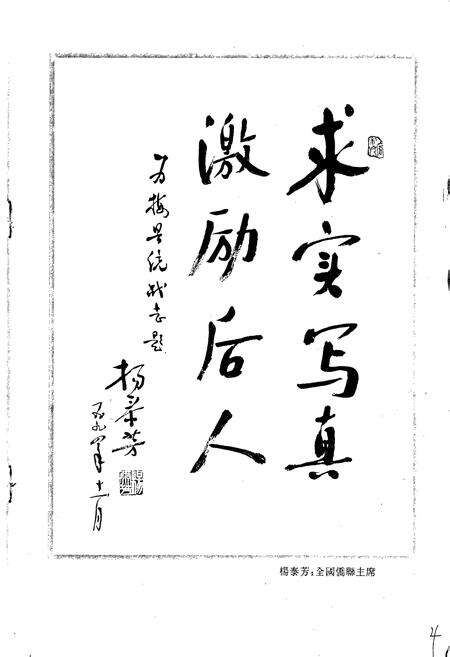 求实写真
激励后人
为梅县统战志题
杨泰芳
一九九〇年十一月
楊泰芳：全國僑聯主席
4